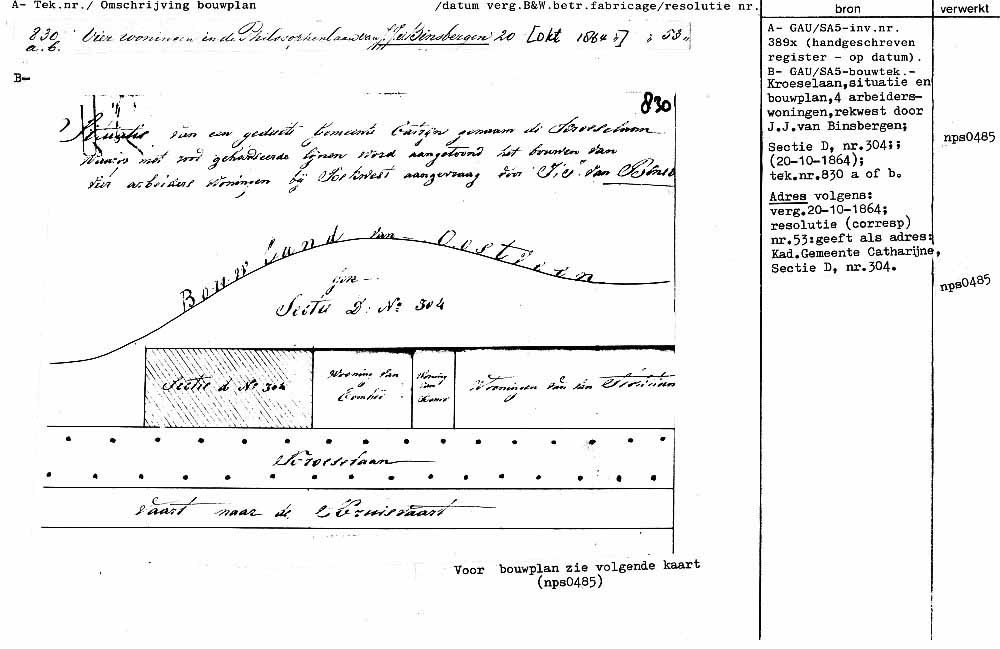 A- Tek.nr./ Omschrijving bouwplan /datum verg.B&W.betr.fabricage/resolutie nr.
bron
verwerkt
830 a.b. Vier woningen in de Philosophenlaan van Binsbergen 20 [okt 1864] : 53.
B-
830
Situatie van een gedeelte Gemeente Catrijn genaam de Kroeselaan
Waarop met rood gehardeerde lijnen word aangetoond het bouwen van
Vier arbeiders Woningen bij Rekwest aangevraag door van Binsb
Bouw Land van Oosteren
Sectie D: No 304
Sectie d No 304
Wooning van
Woning van
Wooningen van den
Kroeselaan
Vaart naar de Kruisvaart
Voor bouwplan zie volgende kaart
(nps0485)
A- GAU/SA5-inv.nr.
389x (handgeschreven
register - op datum).
B- GAU/SA5-bouwtek.-
Kroeselaan,situatie en
bouwplan,4 arbeiders-
woningen,rekwest door
J.J.van Binsbergen;
Sectie D, nr.304;;
(20-10-1864);
tek.nr.830 a of b.
Adres volgens:
verg.20-10-1864;
resolutie (corresp)
nr.53:geeft als adres:
Kad.Gemeente Catharijne,
Sectie D, nr.304.
nps0485
nps0485